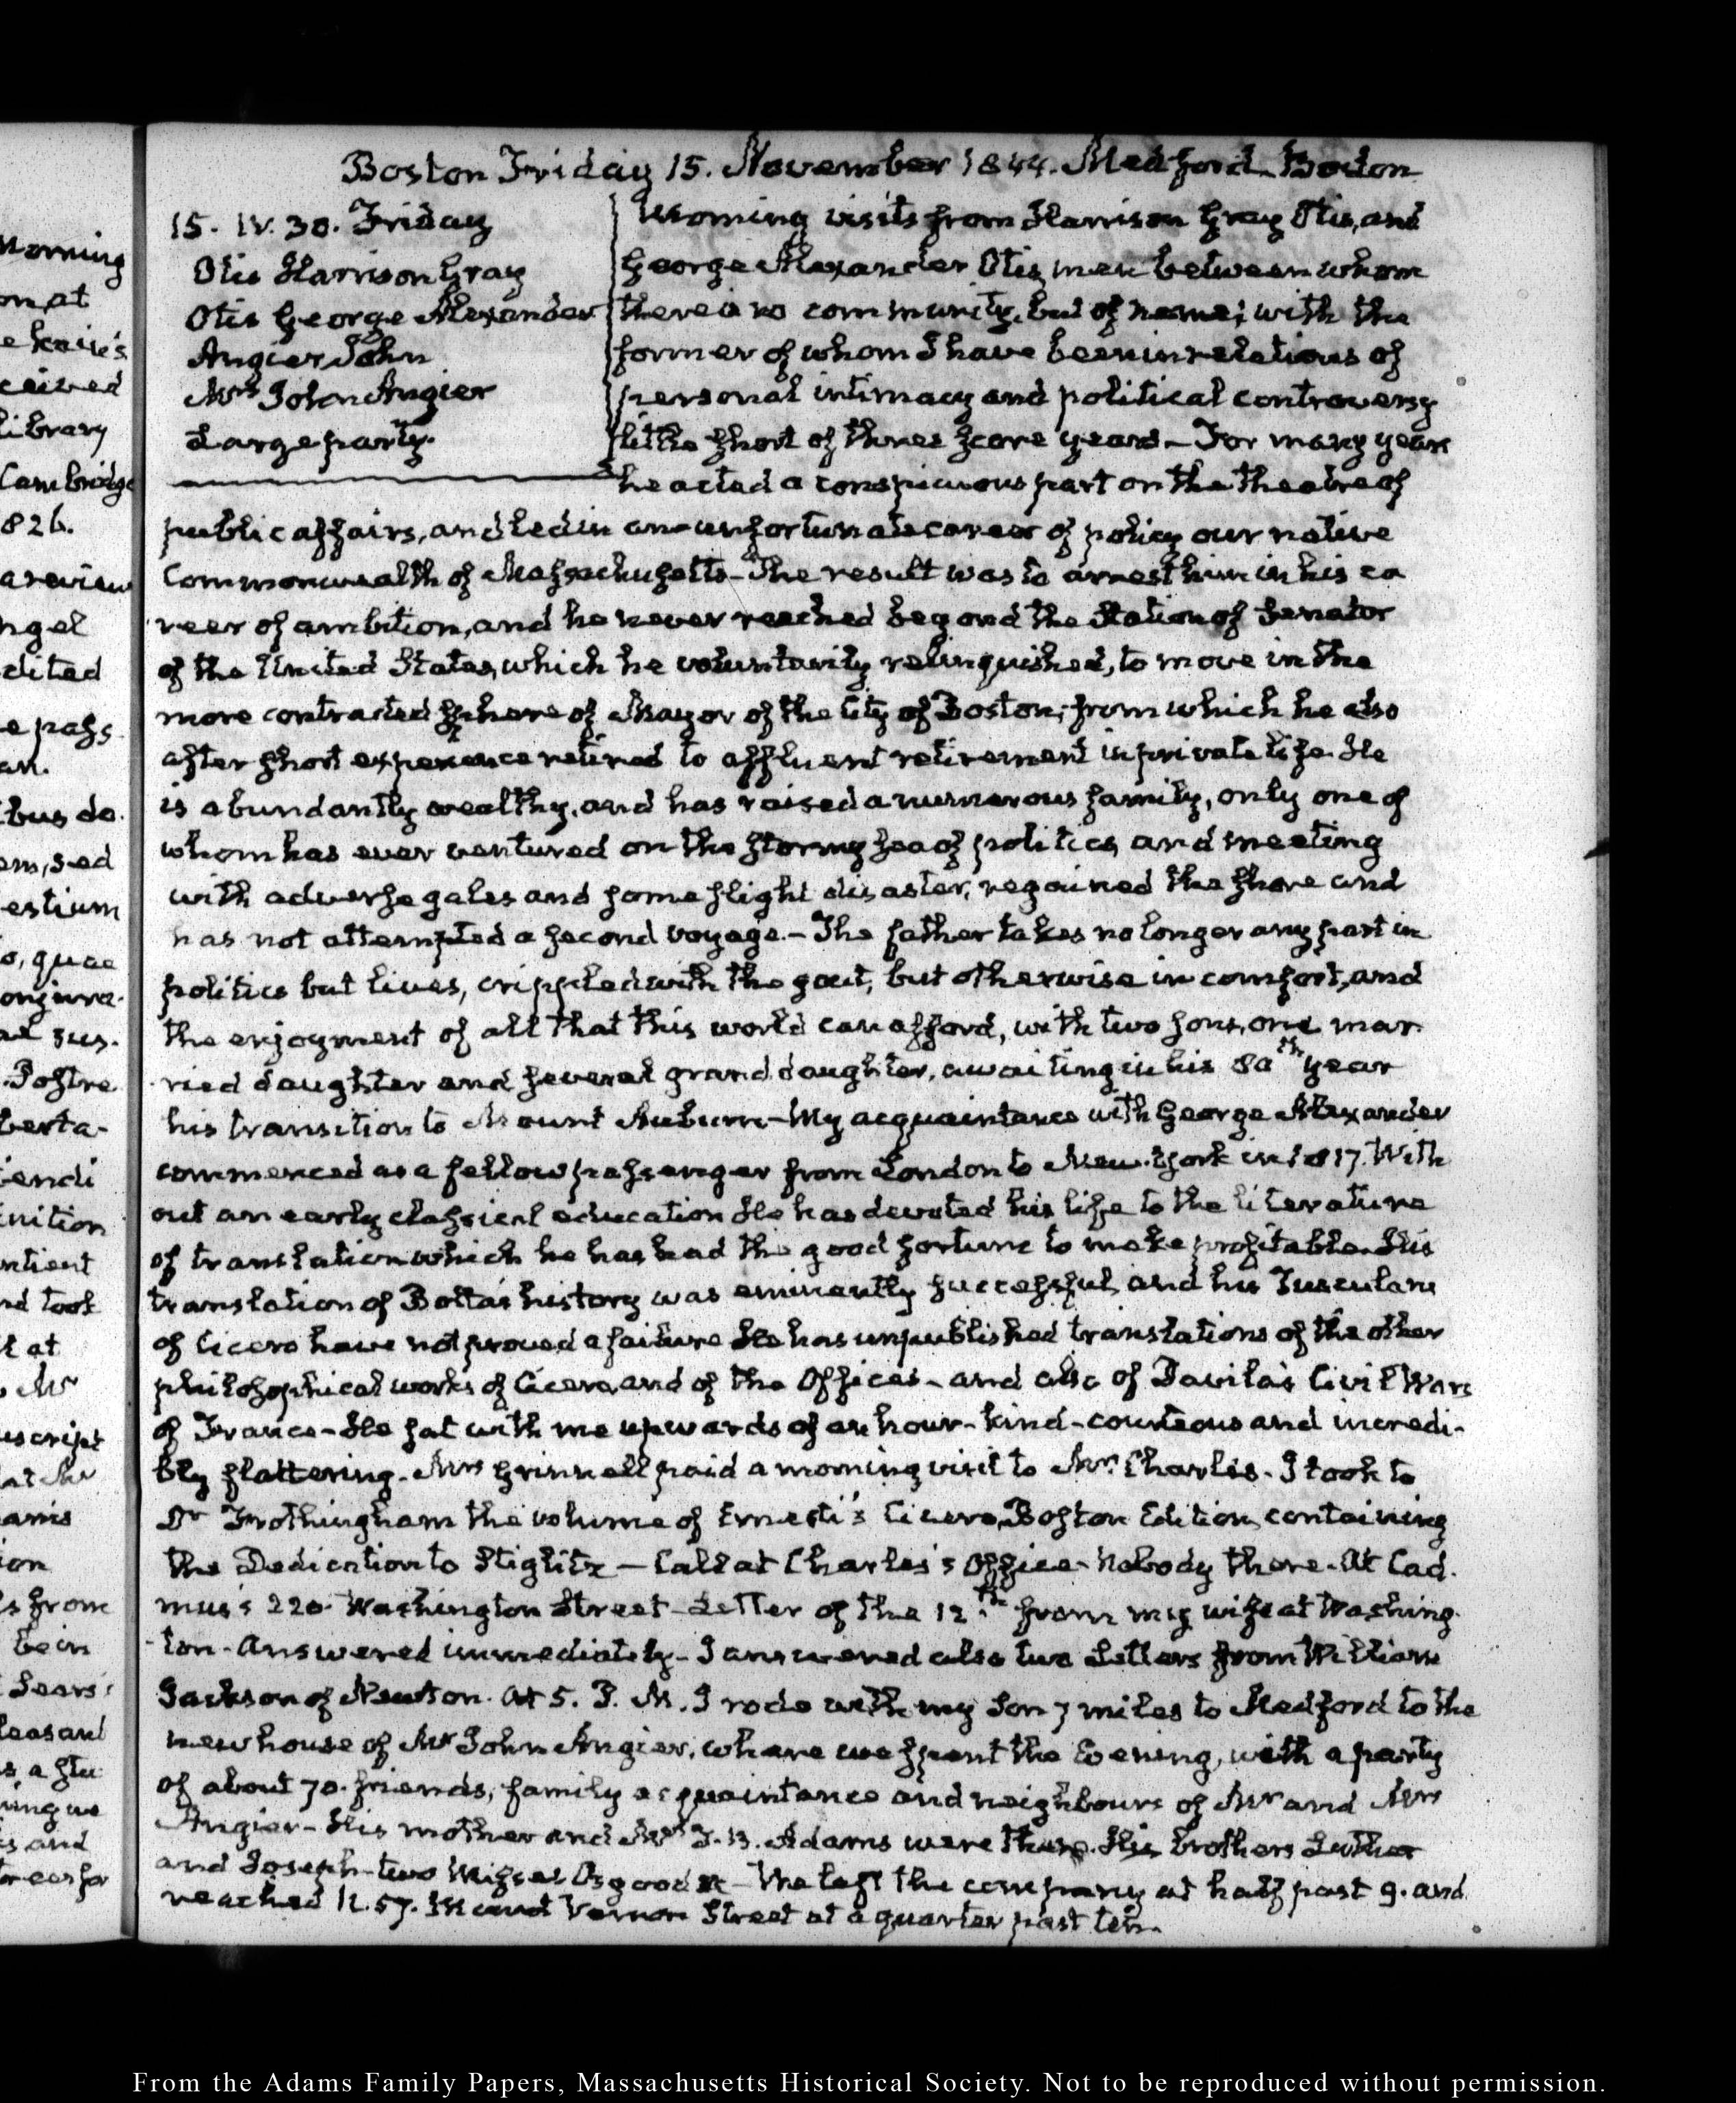 Morning
on, at
ceived
library
Cambridge
826.
a review
ngel
dited
e pass
an.
bus de
em, sed
estium
o, quae
onjura-
al sus-
Postre
berta-
endi
nition
ntient
nd took
t at
Mr
uscript
at Mr
ams
ion
s from
be in
Sears's
leasant
s a stu
ning we
s and
Boston Friday 15. November 1844. Medford-Boston
15. IV. 30. Friday
Otis Harrison Gray
Otis George Alexander
Angier John
Mrs John Angier
Large party.
Morning visits from Harrison Gray Otis, and
George Alexander Otis, men between whom
there is no community, but of name; with the
former of whom I have been in relations of
personal intimacy and political controversy
little short of three score years— For many years
he acted a conspicuous part on the theatre of
public affairs, and led in an unfortunate career of policy our native
Commonwealth of Massachusetts— The result was to arrest him in his ca
reer of ambition, and he never reached beyond the Station of Senator
of the United States, which he voluntarily relinquished, to move in the
more contracted sphere of Mayor of the City of Boston; from which he also
after short experience retired to affluent retirement in private life. He
is abundantly wealthy, and has raised a numerous family, only one of
whom has ever ventured on the stormy sea of politics, and meeting
with adverse gales and some slight disaster, regained the shore and
has not attempted a second voyage.— The father takes no longer any part in
politics but lives, crippled with the gout, but otherwise in comfort, and
the enjoyment of all that this world can afford, with two sons, one mar-
ried daughter and several grand daughter, awaiting in his 80th year
his transition to Mount Auburn— My acquaintance with George Alexander
commenced as a fellow passenger from London to New-York in 1817. With
out an early classical education He has devoted his life to the literature
of translation which he has had the good fortune to make profitable. His
translation of Botta's history was eminently successful, and his Tusculans
of Cicero have not proved a failure He has unpublished translations of the other
philosophical works of Cicero, and of the Offices— and also of Davila's Civil Wars
of France— He sat with me upwards of an hour— kind— courteous and incredi-
bly flattering. Mrs Grinnell paid a morning visit to Mrs Charles. I took to
Dr Frothingham the volume of Ernesti's Cicero, Boston Edition, containing
the Dedication to Stiglitz— Call at Charles's Office— Nobody there. At Cad.
mus's 220. Washington Street— Letter of the 12.th from my wife at Washing-
ton. Answered immediately— I answered also two Letters from William
Jackson of Newton. At 5. P. M. I rode with my Son 7 miles to Medford to the
new house of Mr John Angier, where we spent the Evening, with a party
of about 70. friends, family acquaintance and neighbours of Mr and Mrs
Angier— His mother and Mrs T. B. Adams were there. His brothers Luther
and Joseph— two Misses Osgood &c— We left the company at half past 9. and
reached N. 57. Mount Vernon Street at a quarter past ten.
From the Adams Family Papers, Massachusetts Historical Society. Not to be reproduced without permission.